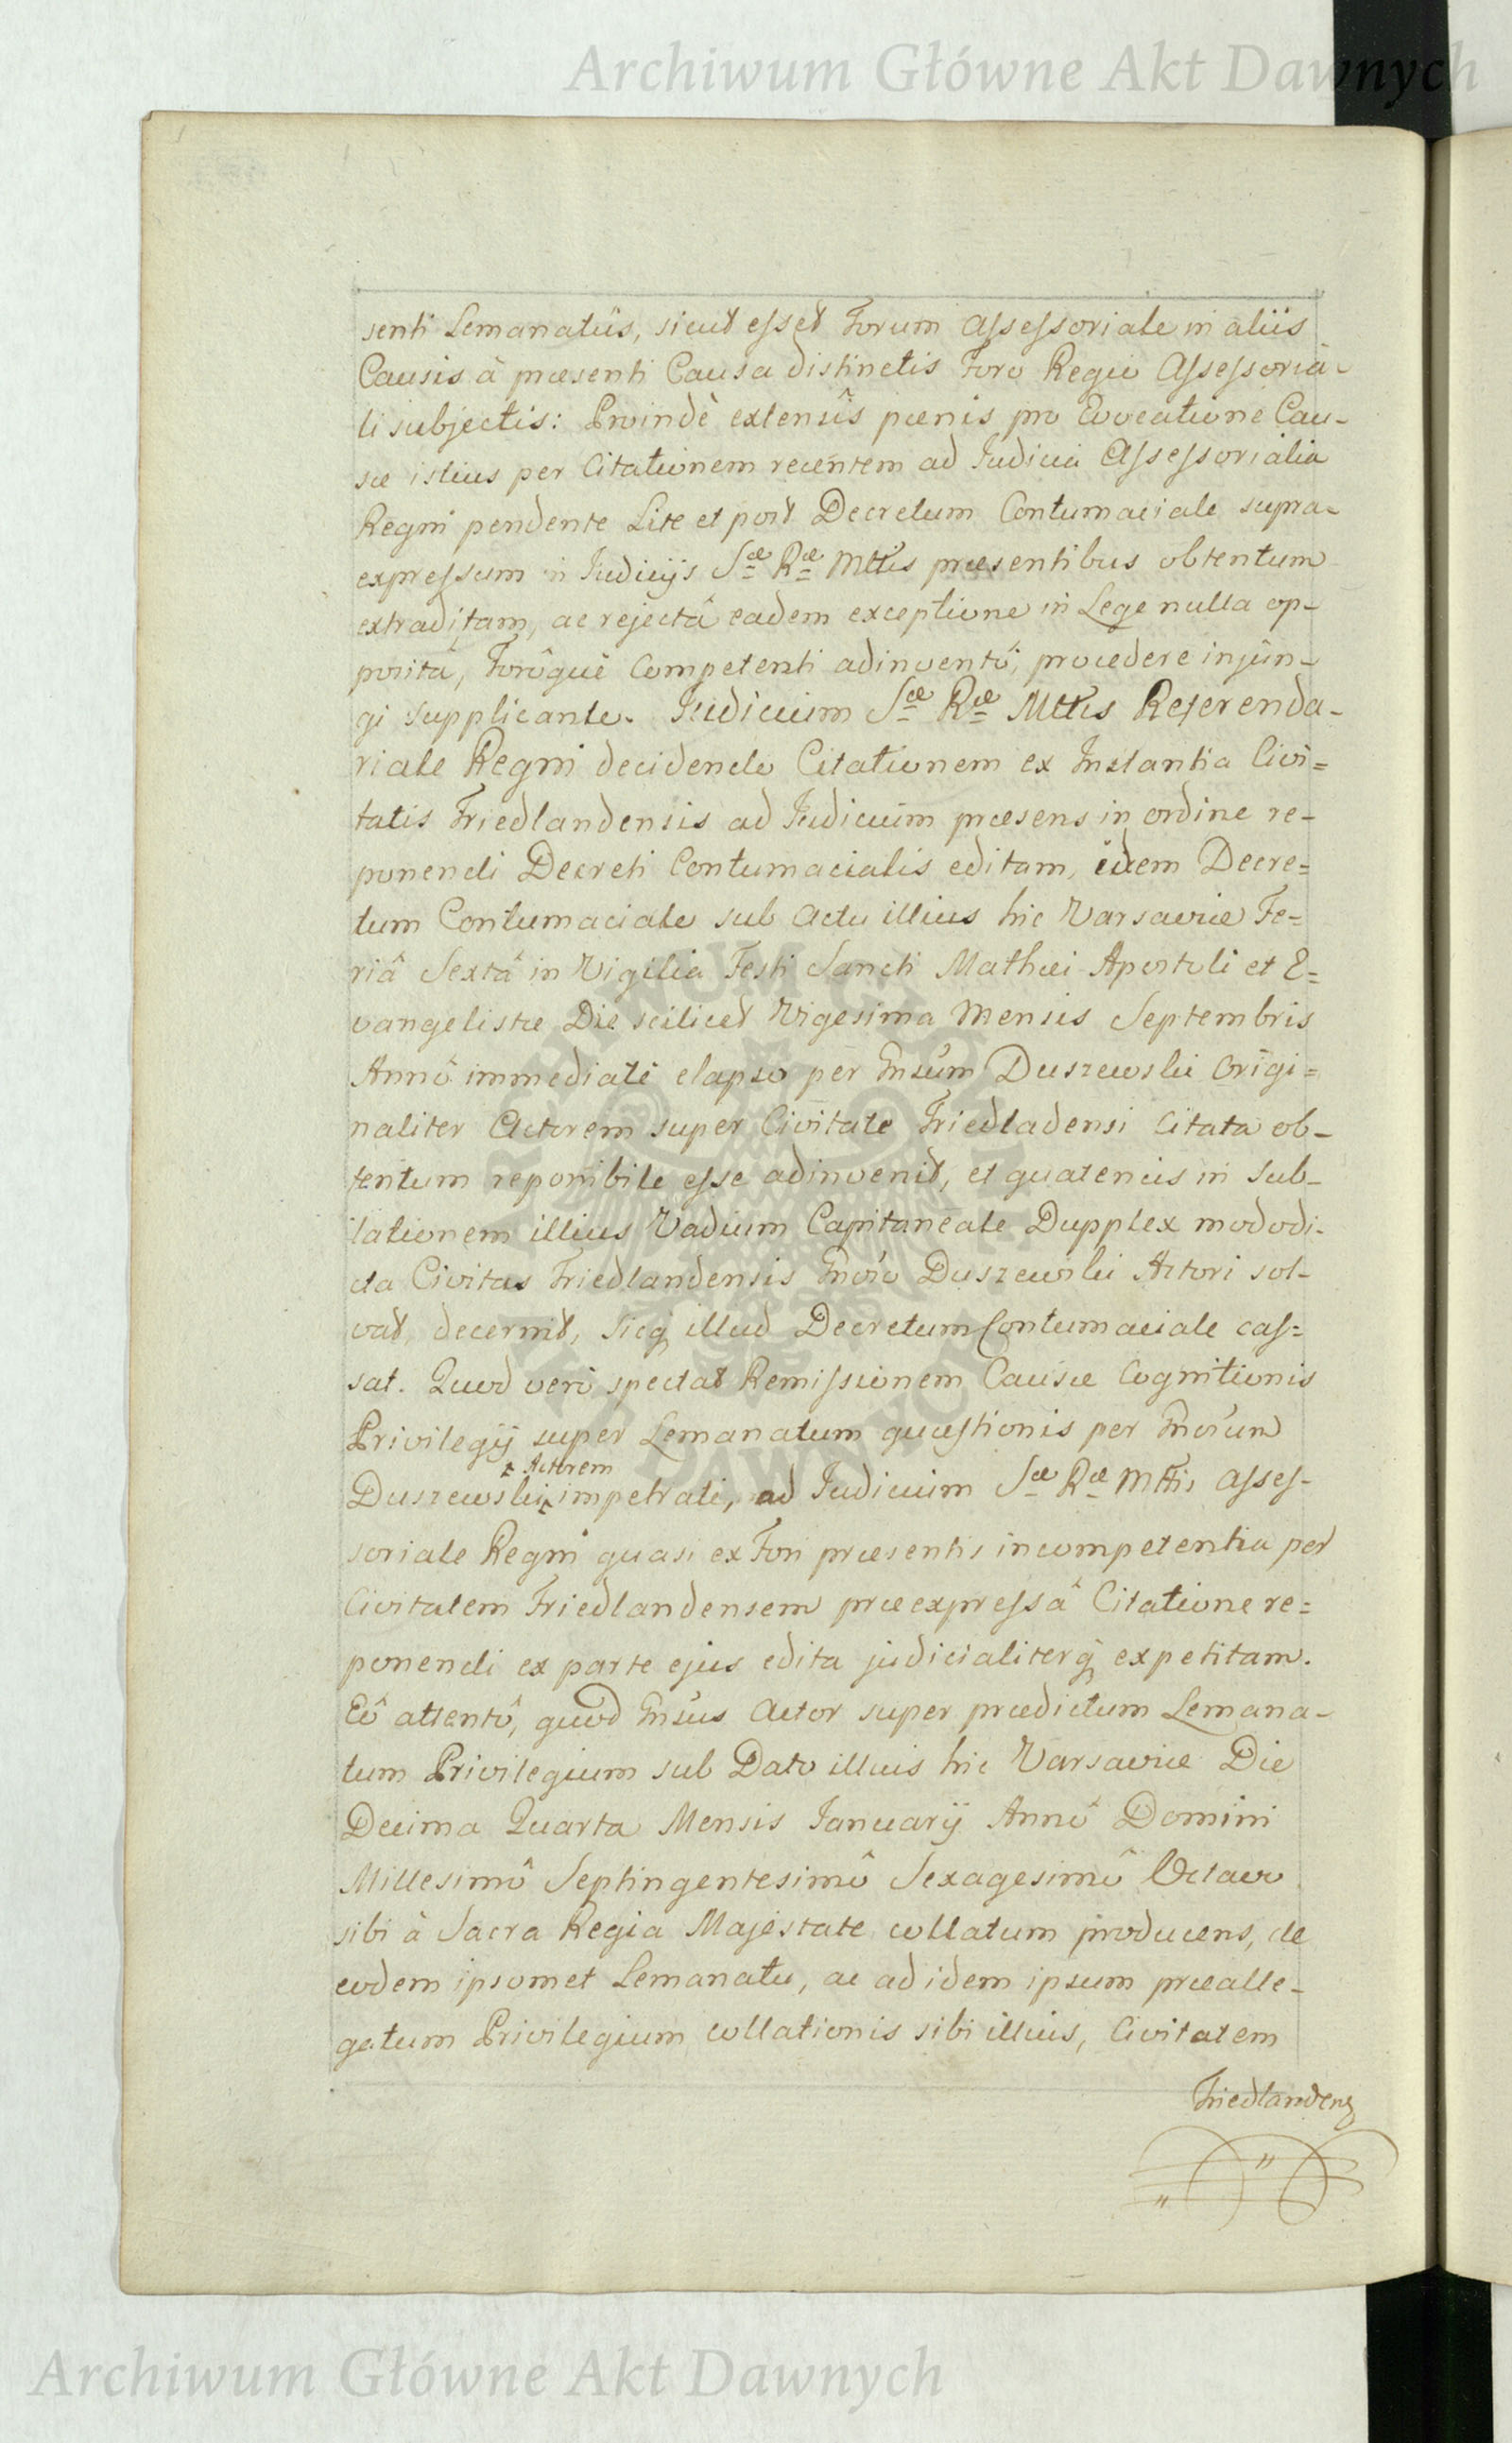 Archiwum Główne Akt Dawnych
senti Lemanatûs, sicut esset Forum Assessoriale in aliis
Causis à præsenti Causa distinctis Foro Regio Assessoria-
li subjectis: Proindè extensîs pœnis pro Evocatione Cau-
sæ istius per Citationem recentem ad Judicia Assessorialia
Regni pendente Lite et post Decretum Contumaciale supra-
expressum in Judicijs Sæ Ræ Mttis præsentibus obtentum
extraditam, ac rejectâ eadem exceptione in Lege nulla op-
posita, Forôquè Competenti adinventô, procedere injûn-
gi supplicante. Judicium Sæ Ræ Mttis Referenda-
riale Regni decidendo Citationem ex Instantia Civi=
tatis Friedlandensis ad Judicium præsens in ordine re-
ponendi Decreti Contumacialis editam, idem Decre=
tum Contumaciale sub Actu illius hic Varsaviæ Fe=
riâ Sextâ in Vigilia Festi Sancti Mathæi Apostoli et E=
vangelistæ Die scilicet Vigesima Mensis Septembris
Annô immediatè elapso per Gnsum Duszewski Origi=
naliter Actorem super Civitate Friedladensi Citata ob-
tentum reponibile esse adinvenit, et quatenus in sub-
lationem illius Vadium Capitaneale Dupplex modo di-
cta Civitas Friedlandensis Gnoso Duszewski Actori sol-
vat, decernit, sicq illud Decretum Contumaciale cas=
sat. Quod verò spectat Remissionem Causæ Cognitionis
Privilegij super Lemanatum quæstionis per Gnosum
Actorem
Duszewski impetrati, ad Judicium Sæ Ræ Mttis Asses-
soriale Regni quasi ex Fori præsentis incompetentia per
Civitatem Friedlandensem præexpressâ Citatione re=
ponendi ex parte ejus edita judicialiterq expetitam.
Eô attentô, quod Gnsus Actor super prædictum Lemana-
tum Privilegium sub Dato illius hic Varsaviæ Die
Decima Quarta Mensis Januarij Annô Domini
Millesimô Septingentesimô Sexagesimô Octavo
sibi à Sacra Regia Majestate collatum producens, de
eodem ipsomet Lemanatu, ac ad idem ipsum præalle-
gatum Privilegium collationis sibi illius, Civitatem
Friedlandens
Archiwum Główne Akt Dawnych